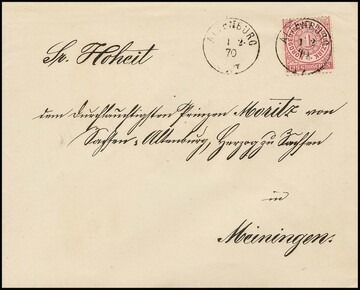 ALTENBURG
1 2
70
ALTENBURG
1 2
Sr. Hoheit
dem Durchlauchtigsten Prinzen Moritz von
Sachsen-Altenburg, Herzog zu Sachsen
in
Meiningen.